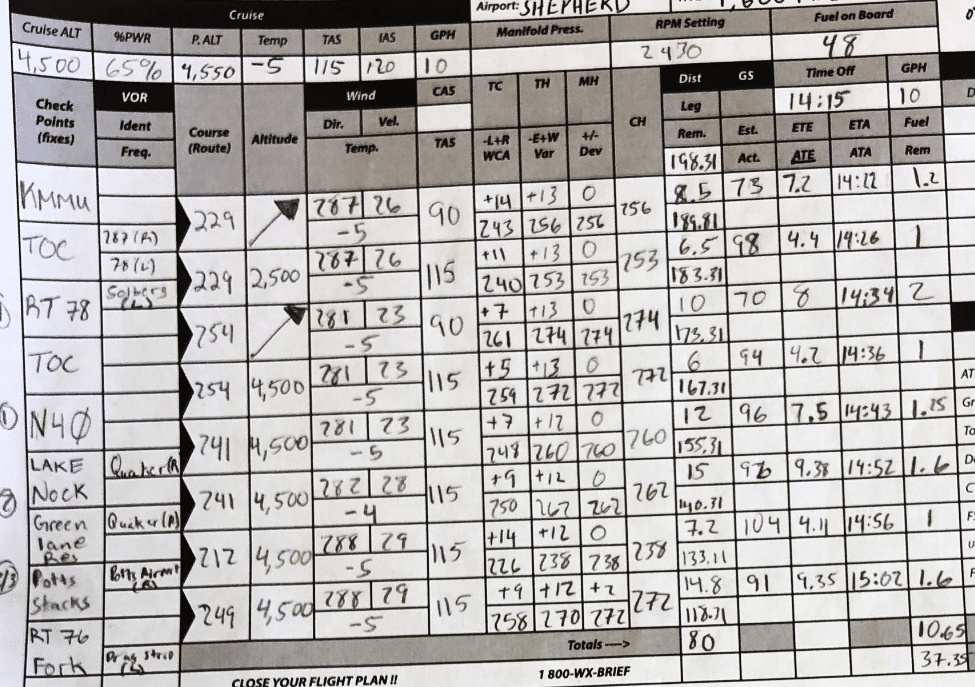 Cruise Airport: SHEPHERD
Cruise ALT %PWR P. ALT Temp TAS IAS GPH Manifold Press. RPM Setting Fuel on Board
4,500 65% 4,550 -5 115 120 10 2430 48
Check Points (fixes) VOR Course (Route) Altitude Wind CAS TC TH MH CH Dist GS Time Off GPH
14:15 10
Ident Dir. Vel. Leg
Freq. Temp. TAS -L+R WCA -E+W Var +/- Dev Rem. Est. ETE ETA Fuel
198.31 Act. ATE ATA Rem
KMMU 229 287 26 90 +14 +13 0 256 8.5 73 7.2 14:22 1.2
-5 243 256 256 189.81
TOC 287(R) 229 2,500 287 26 115 +11 +13 0 253 6.5 98 4.4 14:26 1
78(L) -5 240 253 253 183.31
RT 78 Solberg (L) 254 281 23 90 +7 +13 0 274 10 70 8 14:34 2
-5 261 274 274 173.31
TOC 254 4,500 281 23 115 +5 +13 0 272 6 94 4.2 14:36 1
-5 259 272 272 167.31
N40 241 4,500 281 23 115 +7 +12 0 260 12 96 7.5 14:43 1.25
-5 248 260 260 155.31
LAKE Nock Quaker(R) 241 4,500 282 28 115 +9 +12 0 262 15 96 9.38 14:52 1.6
-4 250 262 262 140.31
Green lane Res Quaker(R) 212 4,500 288 29 115 +14 +12 0 238 7.2 104 4.11 14:56 1
-5 226 238 238 133.11
Potts Stacks Potts Airport (R) 249 4,500 288 29 115 +9 +12 +2 272 14.8 91 9.35 15:02 1.6
-5 258 270 272 118.31
RT 76 Totals ----> 80 10.65
Fork Drag Strip (L) 37.35
CLOSE YOUR FLIGHT PLAN !! 1 800-WX-BRIEF